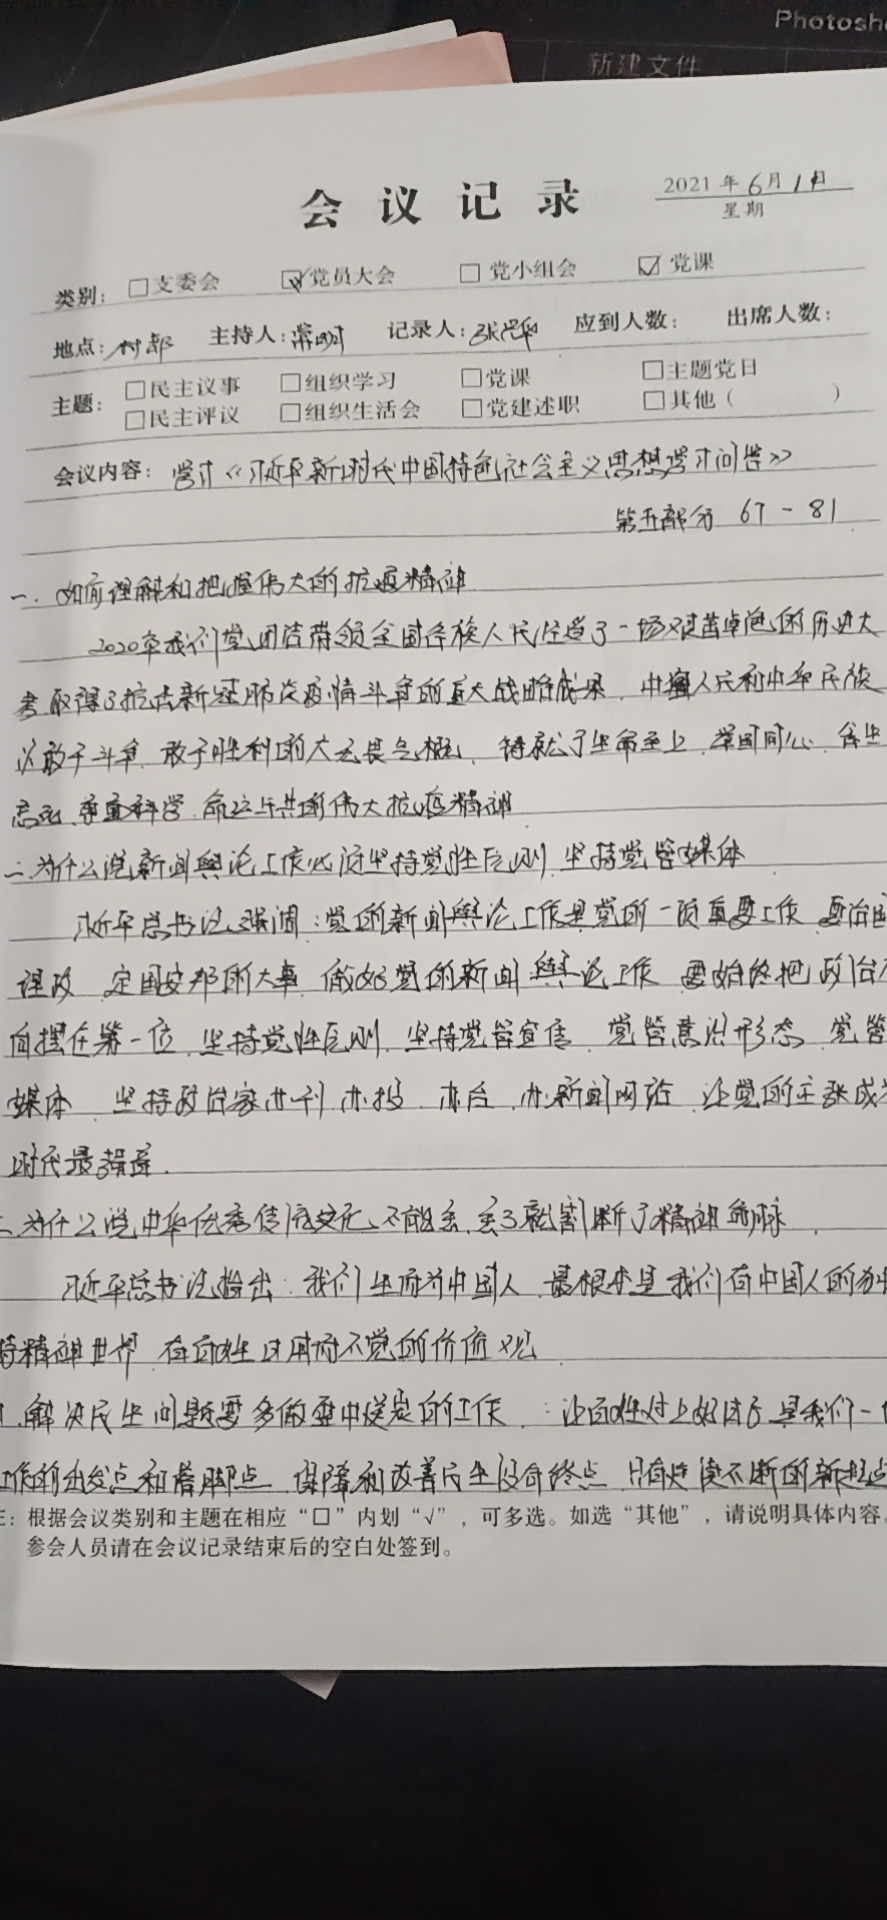 Photosh
新建文件
会议记录
2021年6月1日
星期
类别：□支委会 ☑党员大会 □党小组会 ☑党课
地点：村部 主持人： 记录人： 应到人数： 出席人数：
主题：□民主议事 □组织学习 □党课 □主题党日
□民主评议 □组织生活会 □党建述职 □其他（ ）
会议内容：学习《习近平新时代中国特色社会主义思想学习问答》
第五部分 67-81
一.如何理解和把握伟大的抗疫精神
2020年我们党团结带领全国各族人民经受了一场艰苦卓绝的历史大
考取得了抗击新冠肺炎疫情斗争的重大战略成果.中国人民和中华民族
以敢于斗争.敢于胜利的大无畏气概、铸就了生命至上.举国同心.舍生
忘死.尊重科学.命运与共的伟大抗疫精神
二.为什么说新闻舆论工作必须坚持党性原则.坚持党管媒体
习近平总书记强调:党的新闻舆论工作是党的一项重要工作 是治国
理政 定国安邦的大事 做好党的新闻舆论工作 要始终把政治方
向摆在第一位.坚持党性原则.坚持党管宣传.党管意识形态.党管
媒体 坚持政治家办刊 办报.办台.办新闻网站.让党的主张成为
时代最强音.
三.为什么说中华优秀传统文化、不能丢.丢了就割断了精神命脉.
习近平总书记指出:我们生而为中国人 最根本是我们有中国人的独
特精神世界 有百姓日用而不觉的价值观
.解决民生问题要多做雪中送炭的工作 :让百姓过上好日子是我们一
工作的出发点和落脚点 保障和改善民生没有终点 只有连续不断的新起点
注：根据会议类别和主题在相应“□”内划“√”，可多选。如选“其他”，请说明具体内容。
参会人员请在会议记录结束后的空白处签到。